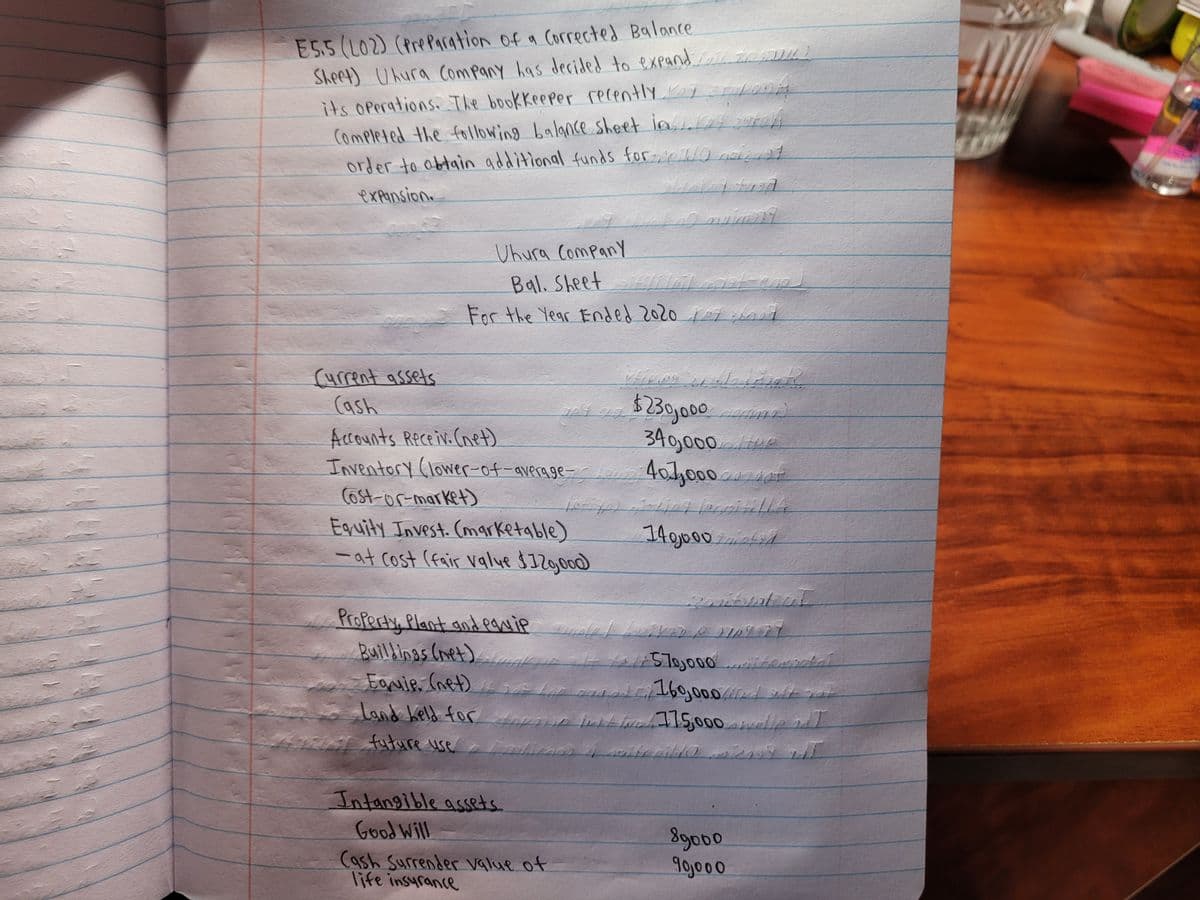 E5.5 (LO2) (Preparation of a Corrected Balance
Sheet) Uhura Company has decided to expand
its operations. The bookkeeper recently
completed the following balance sheet in
order to obtain additional funds for
expansion.
Uhura Company
Bal. Sheet
For the Year Ended 2020
Current assets
Cash $230,000
Accounts Receiv. (net) 340,000
Inventory (lower-of-average- 401,000
cost-or-market)
Equity Invest. (marketable) 140,000
-at cost (fair value $120,000)
Property, Plant and equip
Buildings (net) 570,000
Equip. (net) 160,000
Land held for 175,000
future use
Intangible assets
Goodwill 80,000
Cash Surrender value of 90,000
life insurance